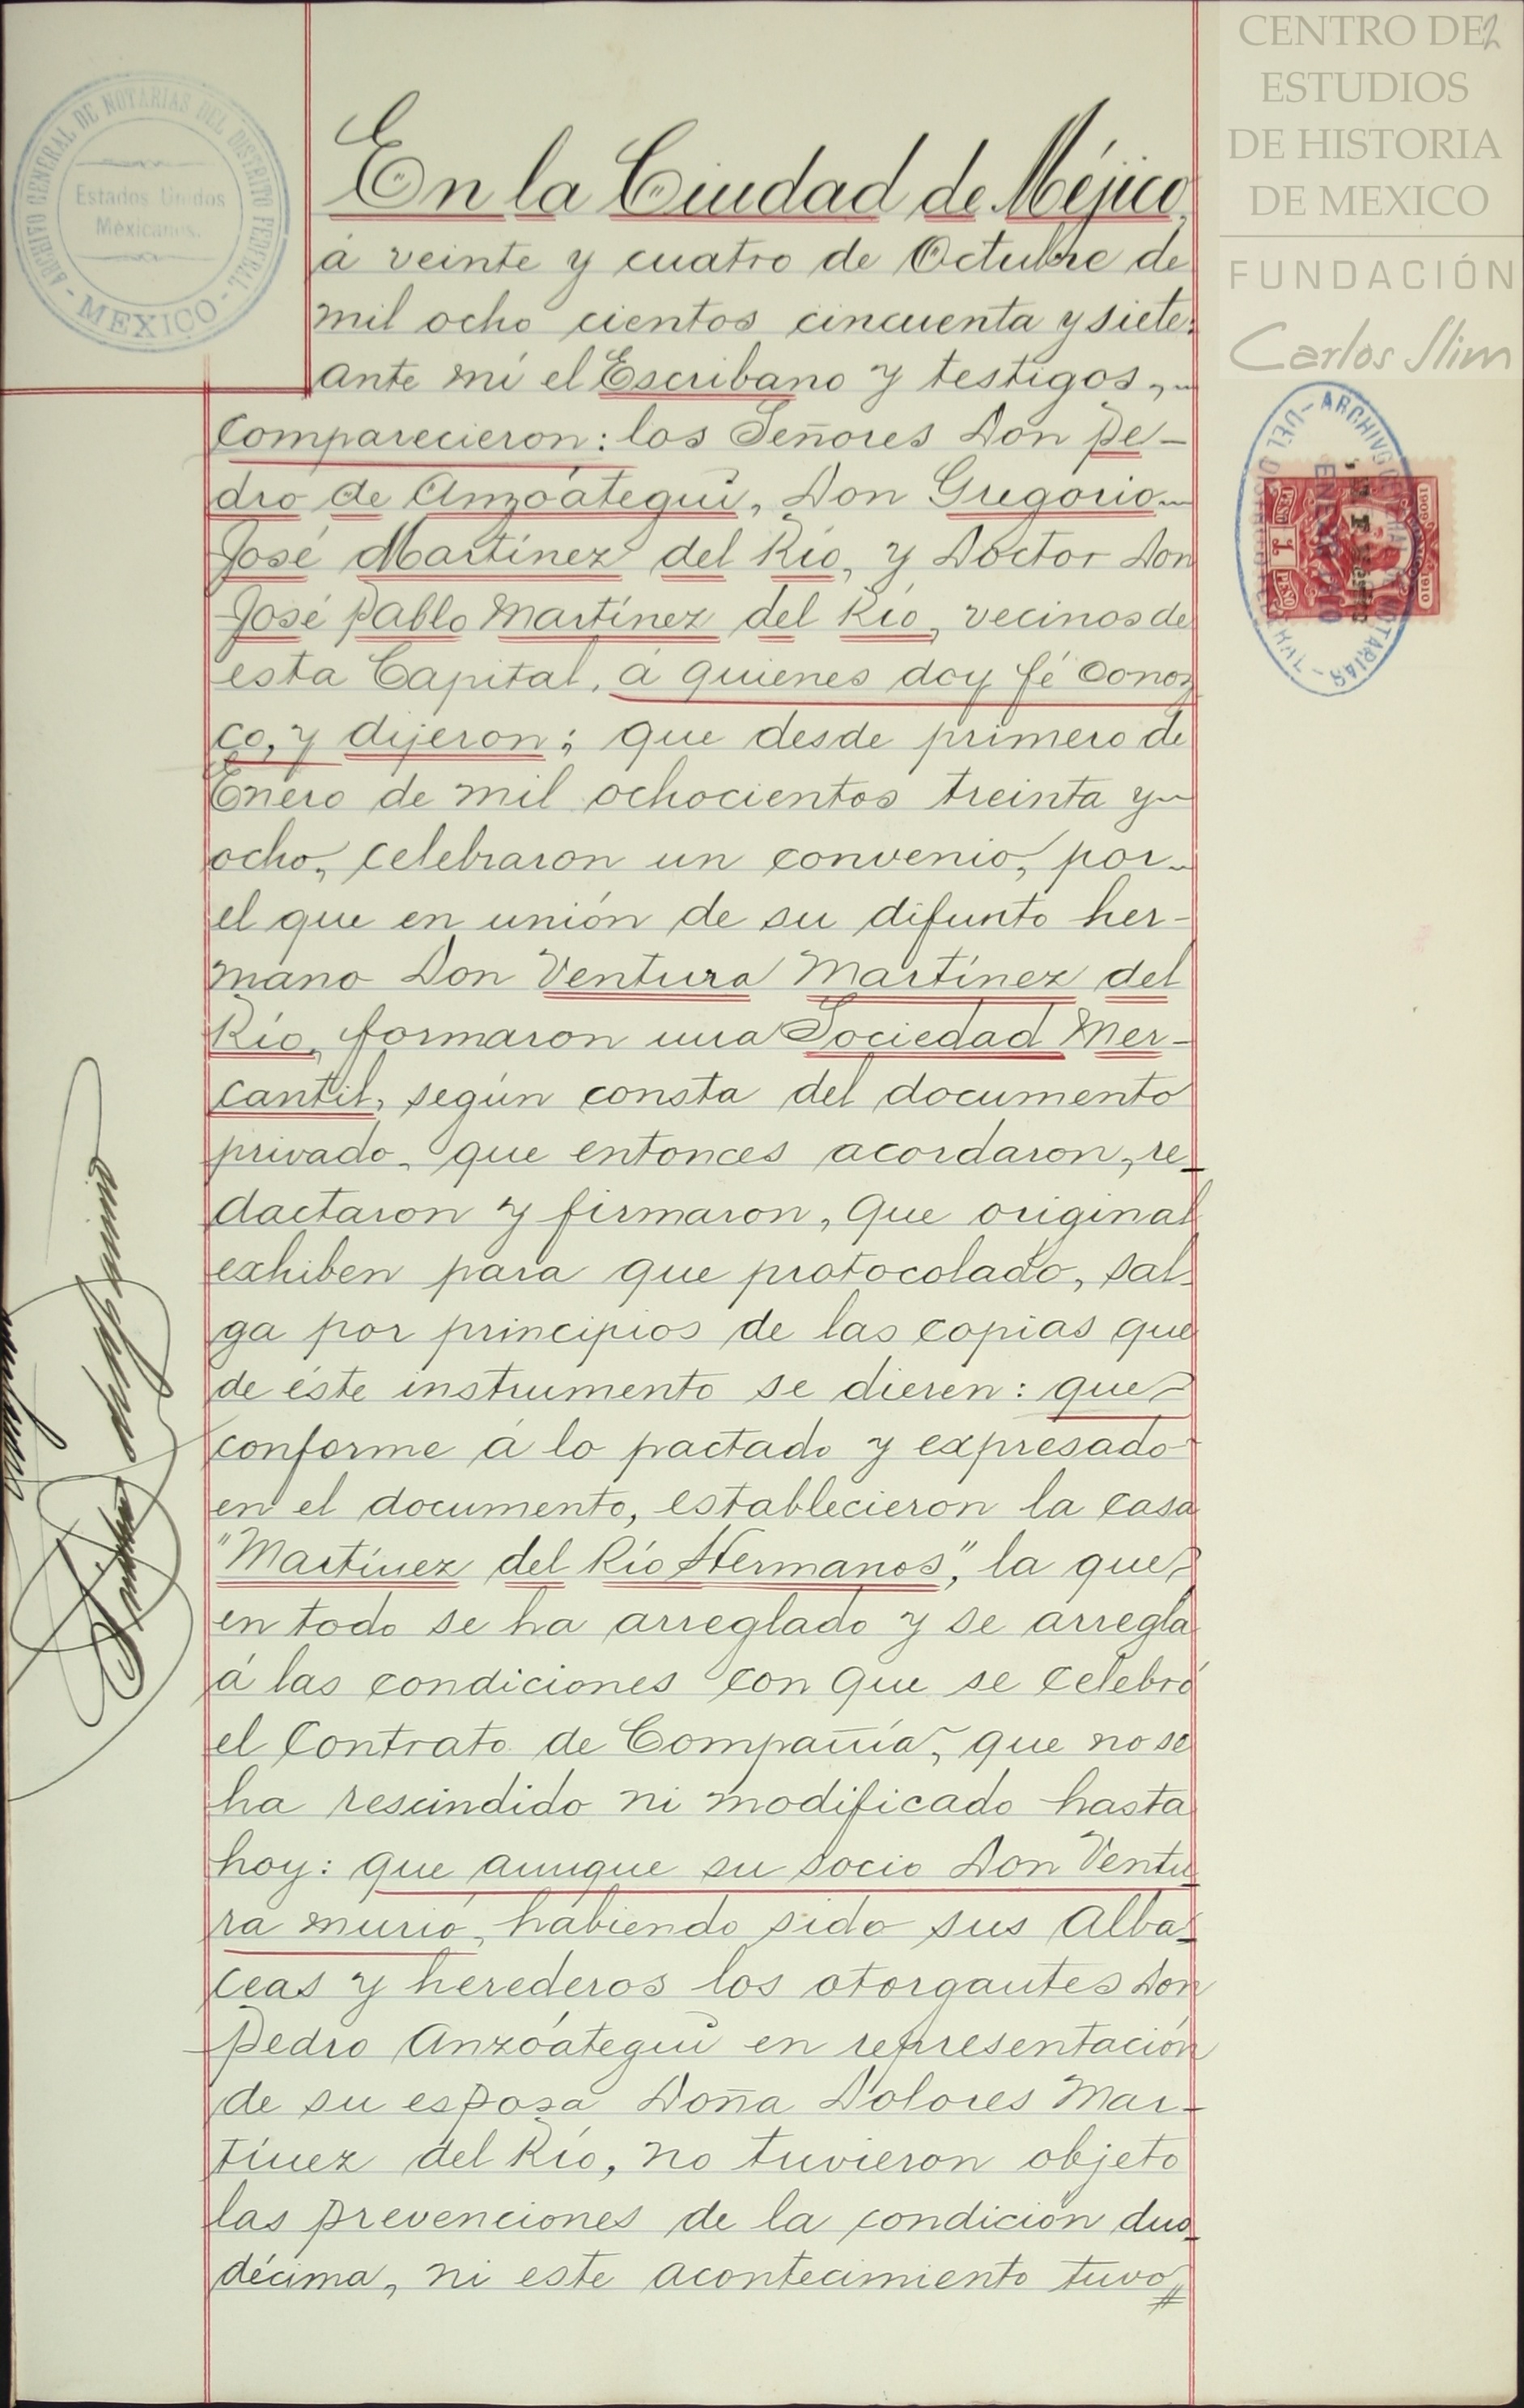 CENTRO DE
ESTUDIOS
DE HISTORIA
DE MEXICO
FUNDACIÓN
Carlos Slim
2
ARCHIVO GENERAL DE NOTARIAS DEL DISTRITO FEDERAL
- MEXICO -
Estados Unidos
Mexicanos.
En la Ciudad de Méjico,
á veinte y cuatro de Octubre de
mil ocho cientos cincuenta y siete:
ante mí el Escribano y testigos,
comparecieron: los Señores Don Pe-
dro de Anzoátegui, Don Gregorio
José Martínez del Río, y Doctor Don
José Pablo Martínez del Río, vecinos de
esta Capital, á quienes doy fé conoz
co, y dijeron; que desde primero de
Enero de mil ochocientos treinta y
ocho, celebraron un convenio, por
el que en unión de su difunto her-
mano Don Ventura Martínez del
Río, formaron una Sociedad Mer-
cantil, según consta del documento
privado, que entonces acordaron, re-
dactaron y firmaron, que original
exhiben para que protocolado, sal-
ga por principios de las copias que
de éste instrumento se dieren: que
conforme á lo pactado y expresado
en el documento, establecieron la casa
"Martínez del Río Hermanos", la que
en todo se ha arreglado y se arregla
á las condiciones con que se celebró
el Contrato de Compañía, que no se
ha rescindido ni modificado hasta
hoy: que aunque su socio Don Ventu
ra murió, habiendo sido sus Alba-
ceas y herederos los otorgantes Don
Pedro Anzoátegui en representación
de su esposa Doña Dolores Mar-
tínez del Río, no tuvieron objeto
las prevenciones de la condición duo-
décima, ni este acontecimiento tuvo
ARCHIVO
NOTARIAS
1909
1910
1
PESO